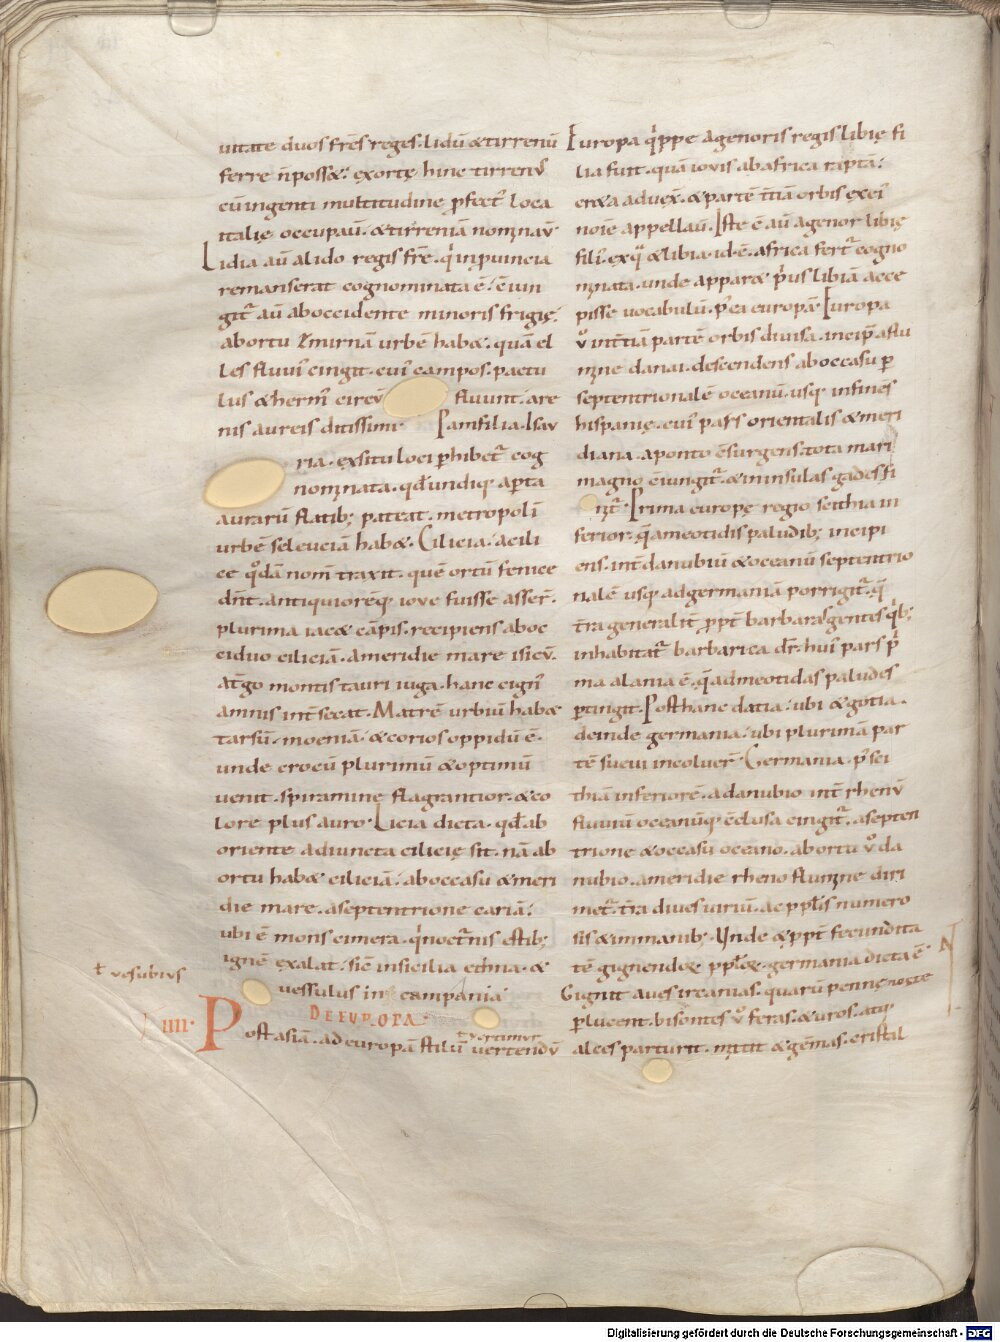 uitate duos frēs reges. lidū &tirrenū
ferre ñ poss&. exortę hinc tirrenꝰ
cū ingenti multitudine ꝓfect᷒ loca
italię occupauı̄. &tirreniā nominauı̄
Lidia aū alido regis frē. qͥ inpuincia
remanserat cognominata ē. Iūn
git᷒ aū aboccidente minoris frigię.
abortu zmirnā urbē hab&. quā el
les fluuiꝰ cingit. cuiꝰ campos. pactu
lus &hermꝰ circū fluunt. are
nis aureis ditissimi Pamfilia. Isau
ria. exsitu loci ꝑhibet᷒ cog
nominata. qđ undiq; apta
aurarū flatib; pateat. metropolī
urbē seleuciā hab&. Cilicia. acili
ce qͦdā nom̄ traxit. quē ortū fenice
dn̄t. antiquiorēq; ioue fuisse asser̄.
plurima iac& cāpis. recipiens aboc
ciduo ciliciā. ameridie mare isicū.
at̄go montis tauri iuga. hanc cignꝰ
amnis int̄secat. Matrē urbiū hab&
tarsū. moeniā. &corios oppidū ē.
unde crocū plurimū &optimū
uenit. spiramine flagrantior. &co
lore plus auro. Licia dicta. qđ ab
oriente adiuncta cilicię sit. nā ab
ortu hab& ciliciā. aboccasu &meri
die mare. aseptentrione cariā.
ubi ē mons cimera. qͥ noct᷒nis estib;
ignē exalat. sic̄ insicilia ethna. &
ł uesubius
uessulus in campania
DE EUROPA.
IIII.
ł uertimur
Post asiā. ad europā stilū uertendū
Europa qͥppe agenoris regis libię fi
lia fuit. quā iouis abafrica raptā.
cr&a aduex̄. &partē t̄tiā orbis exeiꝰ
noīe appellauı̄. Iste ē aū agenor libię
filiꝰ. exqͣ &libia. id ē. africa fert᷒ cogno
minata. unde appar& pͥus libiā acce
pisse uocabulū. pꝰea europā. Europa
ūͦ int̄tiā partē orbis diuisa. incip̄ aflu
mine danai. descendens aboccasu ꝑ
septentrionalē oceanū. usq; infines
hispanię. cuiꝰ pars orientalis &meri
diana. aponto c̄surgens. tota mari
magno c̄iungit᷒. &ininsulas gades fi
nit᷒. Prima europę regio scithia in
ferior. q̄ ameotidis paludib; incipi
ens. int̄ danubiū &oceanū septentrio
nalē usq; adgermaniā porrigit᷒. q̄
t̄ra generalit̄ ꝓpt̄ barbaras gentes qͥb;
inhabitat᷒ barbarica dr̄. huiꝰ pars pͥ
ma alania ē. q̄ admeotidas paludes
ꝑtingit. Post hanc datia. ubi &gotia.
deinde germania. ubi plurimā par
tē sueui incoluer̄. Germania pꝰ sci
thiā inferiorē. adanubio int̄ rhenū
fluuiū oceanūq; c̄clusa cingit᷒. asepten
trione &occasu oceano. abortu ūͦ da
nubio. ameridie rheno flumine diri
met᷒. t̄ra diues uirū. ac pplīs numero
sis &immanib; Unde &ꝓpt̄ fecundita
tē gignendoꝝ pploꝝ. germania dicta ē
Gignit aues ircanias. quarū pennę nocte
ꝑlucent. bisontes ūͦ feras. &uros. atq;
alces parturit. mittit &gēmas. cristal